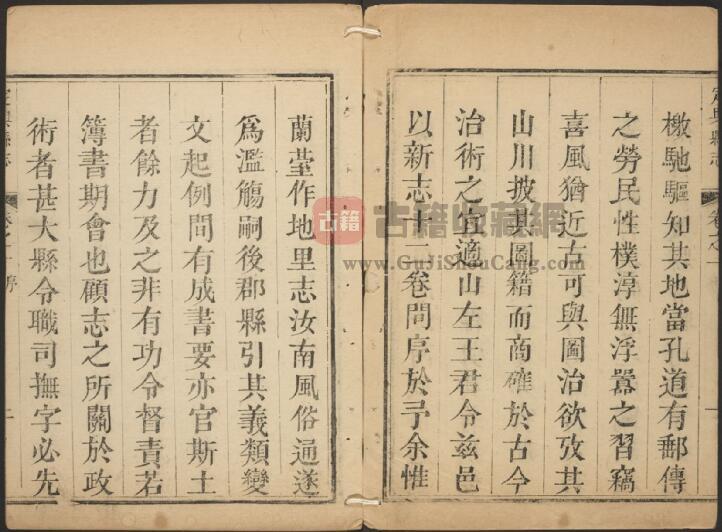 定興縣志
卷之一
檄馳驅知其地當孔道有郵傳
之勞民性樸淳無浮囂之習竊
喜風猶近古可與圖治欲攷其
山川披其圖籍而商確於古今
治術之宜適山左王君令茲邑
以新志十二卷問序於予余惟
蘭臺作地里志汝南風俗通遂
為濫觴嗣後郡縣引其義類變
文起例間有成書要亦官斯土
者餘力及之非有功令督責若
簿書期會也顧志之所關於政
術者甚大縣令職司撫字必先
定興縣志
卷之一 序
古籍
古籍收藏網
www.GuJiShouCang.com